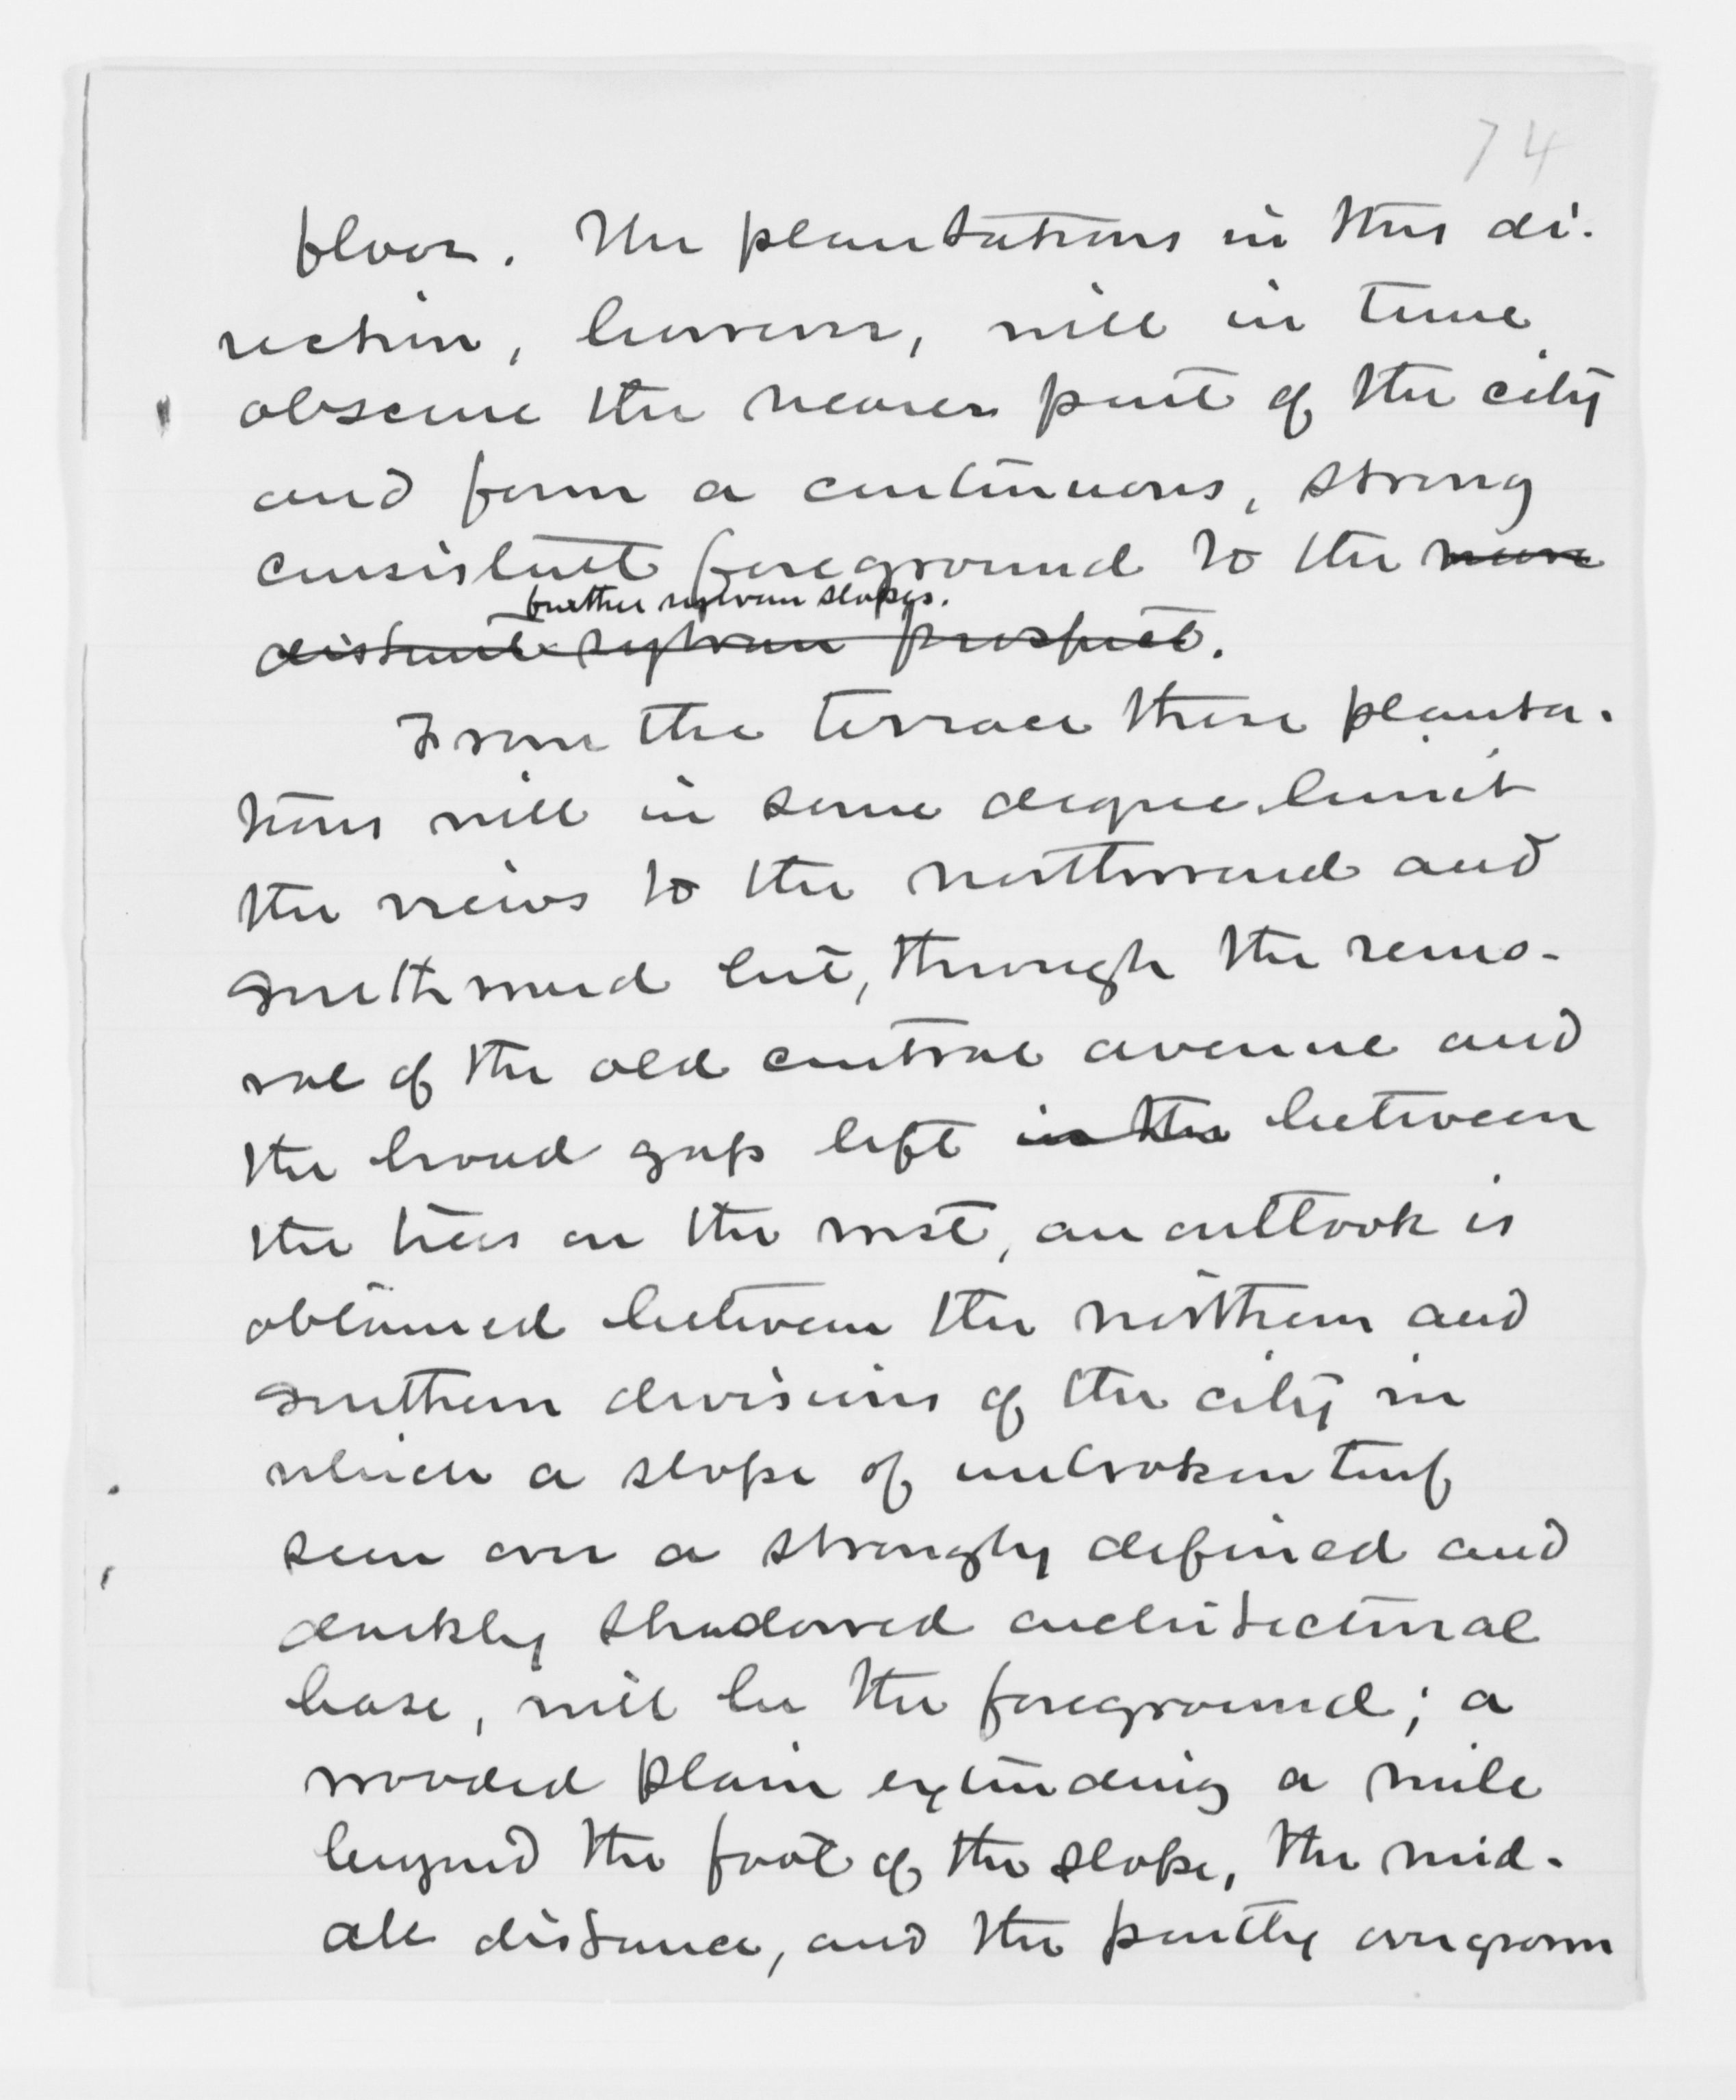 74
floor. The plantations in this di-
rection, however, will in time
obscure the nearer part of the city
and form a continuous, strong
consistent foreground to the more
further sylvan slopes.
distant sylvan prospect.
From the terrace these planta-
tions will in some degree limit
the views to the northward and
southward but, through the remo-
val of the old central avenue and
the broad gap left in the between
the trees on the west, an outlook is
obtained between the northern and
southern divisions of the city in
which a slope of unbroken turf
seen over a strongly defined and
darkly shadowed architectural
base, will be the foreground; a
wooded plain extending a mile
beyond the foot of the slope, the mid-
dle distance, and the partly overgrown